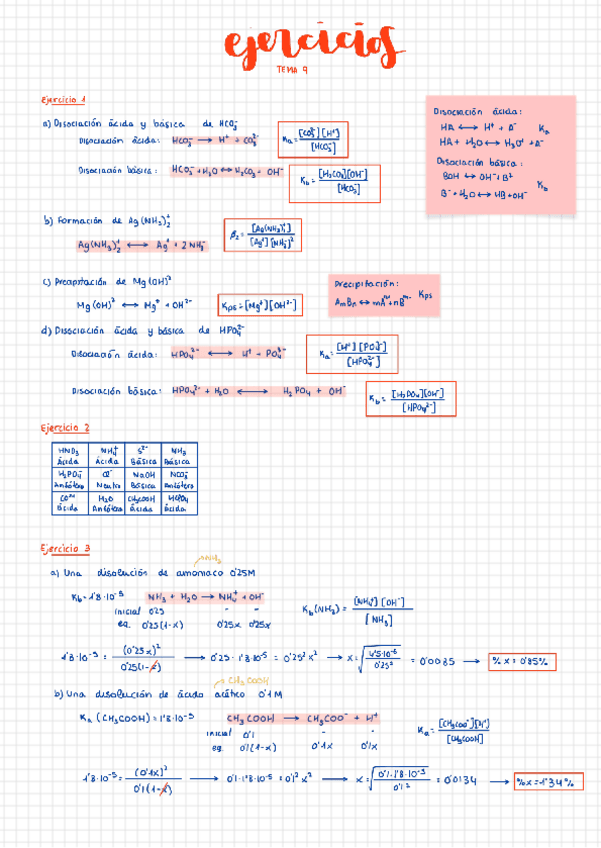 ejercicios
TEMA 9
Ejercicio 1
a) Disociación ácida y básica de HCO₃⁻
Disociación ácida: HCO₃⁻ → H⁺ + CO₃²⁻ Ka = [CO₃²⁻][H⁺] / [HCO₃⁻]
Disociación básica: HCO₃⁻ + H₂O ↔ H₂CO₃ + OH⁻ Kb = [H₂CO₃][OH⁻] / [HCO₃⁻]
Disociación ácida:
HA ↔ H⁺ + A⁻ Ka
HA + H₂O ↔ H₃O⁺ + A⁻
Disociación básica:
BOH ↔ OH⁻ + B⁺ Kb
B⁻ + H₂O ↔ HB + OH⁻
b) Formación de Ag(NH₃)₂⁺
Ag(NH₃)₂⁺ ↔ Ag⁺ + 2NH₃ β₂ = [Ag(NH₃)₂⁺] / [Ag⁺][NH₃]²
c) Precipitación de Mg(OH)²
Mg(OH)² ↔ Mg⁺ + OH²⁻ Kps = [Mg⁺][OH²⁻]
Precipitación:
AmBn ↔ mAⁿ⁺ + nBᵐ⁻ Kps
d) Disociación ácida y básica de HPO₄²⁻
Disociación ácida: HPO₄²⁻ ↔ H⁺ + PO₄³⁻ Ka = [H⁺][PO₄³⁻] / [HPO₄²⁻]
Disociación básica: HPO₄²⁻ + H₂O ↔ H₂PO₄ + OH⁻ Kb = [H₂PO₄][OH⁻] / [HPO₄²⁻]
Ejercicio 2
HNO₃ NH₄⁺ S²⁻ NH₃
Ácida Ácida Básica Básica
H₂PO₄⁻ Cl⁻ NaOH HCO₃⁻
Anfótero Neutro Básica Anfótero
H₂O CH₃COOH
Ácida Anfótero Ácida Ácida
Ejercicio 3
NH₃
a) Una disolución de amoniaco 0'25M
Kb = 1'8·10⁻⁵ NH₃ + H₂O → NH₄⁺ + OH⁻
inicial 0'25 - -
eq. 0'25(1-x) 0'25x 0'25x
Kb(NH₃) = [NH₄⁺][OH⁻] / [NH₃]
1'8·10⁻⁵ = (0'25x)² / 0'25(1-x) → 0'25·1'8·10⁻⁵ = 0'25²x² → x = √(4'5·10⁻⁶ / 0'25²) = 0'0085 → %x = 0'85%
CH₃COOH
b) Una disolución de ácido acético 0'1M
Ka (CH₃COOH) = 1'8·10⁻⁵ CH₃COOH → CH₃COO⁻ + H⁺
inicial 0'1 - -
eq. 0'1(1-x) 0'1x 0'1x
Ka = [CH₃COO⁻][H⁺] / [CH₃COOH]
1'8·10⁻⁵ = (0'1x)² / 0'1(1-x) → 0'1·1'8·10⁻⁵ = 0'1²x² → x = √(0'1·1'8·10⁻⁵ / 0'1²) = 0'0134 → %x = 1'34%